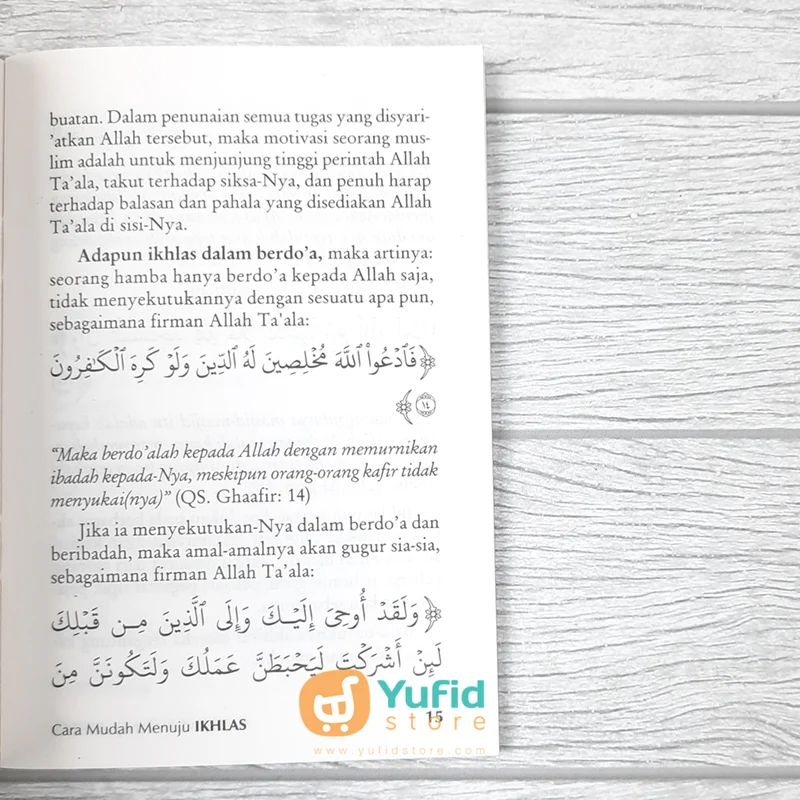 buatan. Dalam penunaian semua tugas yang disyari-
'atkan Allah tersebut, maka motivasi seorang mus-
lim adalah untuk menjunjung tinggi perintah Allah
Ta'ala, takut terhadap siksa-Nya, dan penuh harap
terhadap balasan dan pahala yang disediakan Allah
Ta'ala di sisi-Nya.
Adapun ikhlas dalam berdo'a, maka artinya:
seorang hamba hanya berdo'a kepada Allah saja,
tidak menyekutukannya dengan sesuatu apa pun,
sebagaimana firman Allah Ta'ala:
﴿فَٱدْعُوا۟ ٱللَّهَ مُخْلِصِينَ لَهُ ٱلدِّينَ وَلَوْ كَرِهَ ٱلْكَـٰفِرُونَ
١٤﴾
“Maka berdo'alah kepada Allah dengan memurnikan
ibadah kepada-Nya, meskipun orang-orang kafir tidak
menyukai(nya)” (QS. Ghaafir: 14)
Jika ia menyekutukan-Nya dalam berdo'a dan
beribadah, maka amal-amalnya akan gugur sia-sia,
sebagaimana firman Allah Ta'ala:
﴿وَلَقَدْ أُوحِىَ إِلَيْـكَ وَإِلَى ٱلَّذِينَ مِـن قَبْلِكَ
لَئِنْ أَشْرَكْتَ لَيَحْبَطَنَّ عَمَلُكَ وَلَتَكُونَنَّ مِنَ
Cara Mudah Menuju IKHLAS 15
Yufid
store
www.yufidstore.com